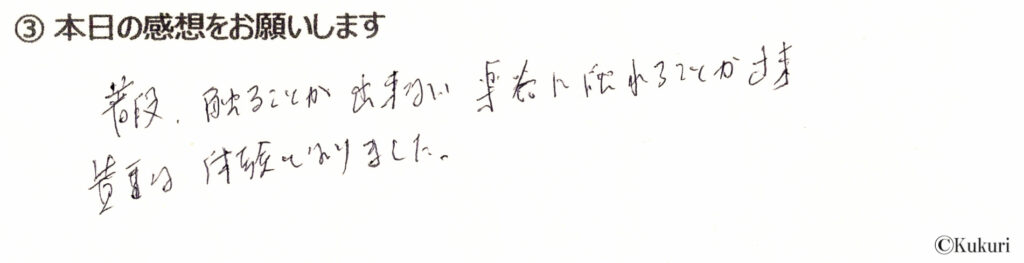 ③ 本日の感想をお願いします
普段、触ることが出来ない楽器に触れることが出来
貴重な体験になりました。
©Kukuri